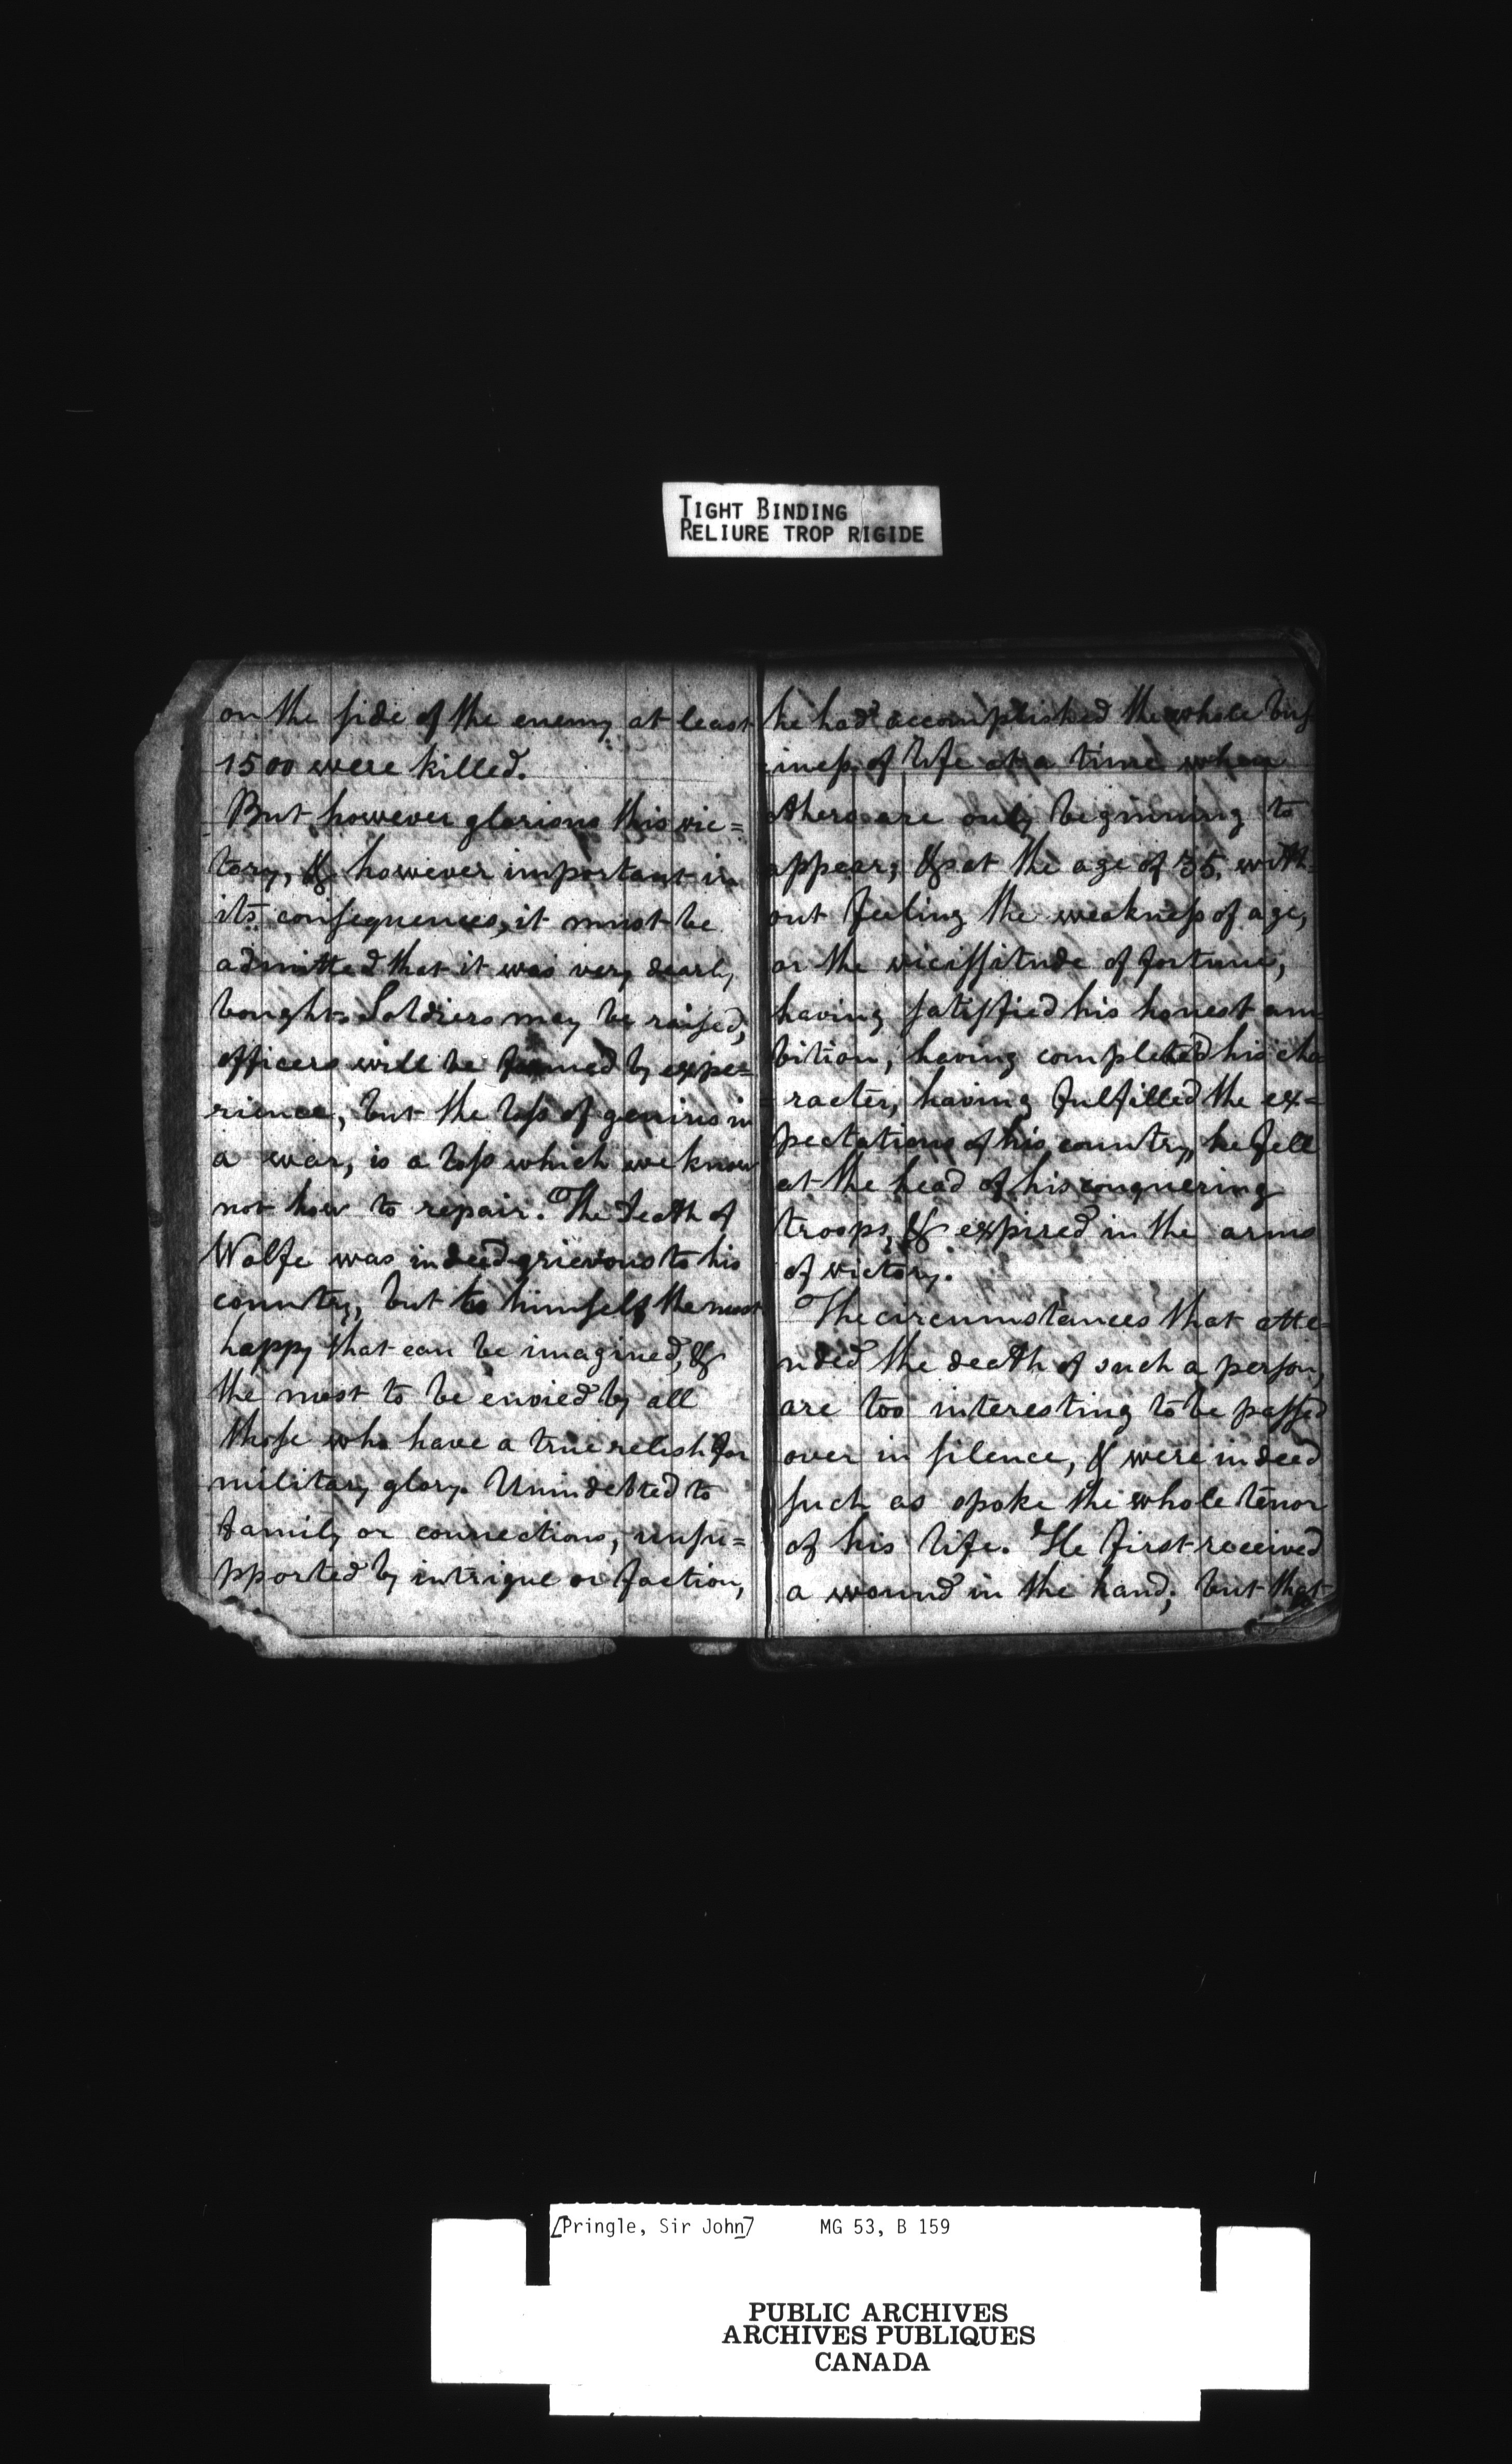 TIGHT BINDING
RELIURE TROP RIGIDE
on the side of the enemy at least
1500 were killed.
But however glorious this vic=
tory, & however important in
its consequences, it must be
admitted that it was very dearly
bought. Soldiers may be raised,
officers will be formed by expe=
rience, but the loss of genius in
a war, is a loss which we know
not how to repair. The death of
Wolfe was indeed grievous to his
country, but to himself the most
happy that can be imagined, &
the most to be envied by all
those who have a true relish for
military glory. Unindebted to
family or connections, unsu=
pported by intrigue or faction,
he had accomplished the whole bus
iness of life at a time when
others are only beginning to
appear; & at the age of 35, with
out feeling the weakness of age,
or the vicissitude of fortune,
having satisfied his honest am=
bition, having completed his cha
racter, having fulfilled the ex=
pectations of his country, he fell
at the head of his conquering
troops, & expired in the arms
of victory.
The circumstances that atte=
nded the death of such a person,
are too interesting to be passed
over in silence, & were indeed
such as spoke the whole tenor
of his life. He first received
a wound in the hand; but that
[Pringle, Sir John] MG 53, B 159
PUBLIC ARCHIVES
ARCHIVES PUBLIQUES
CANADA